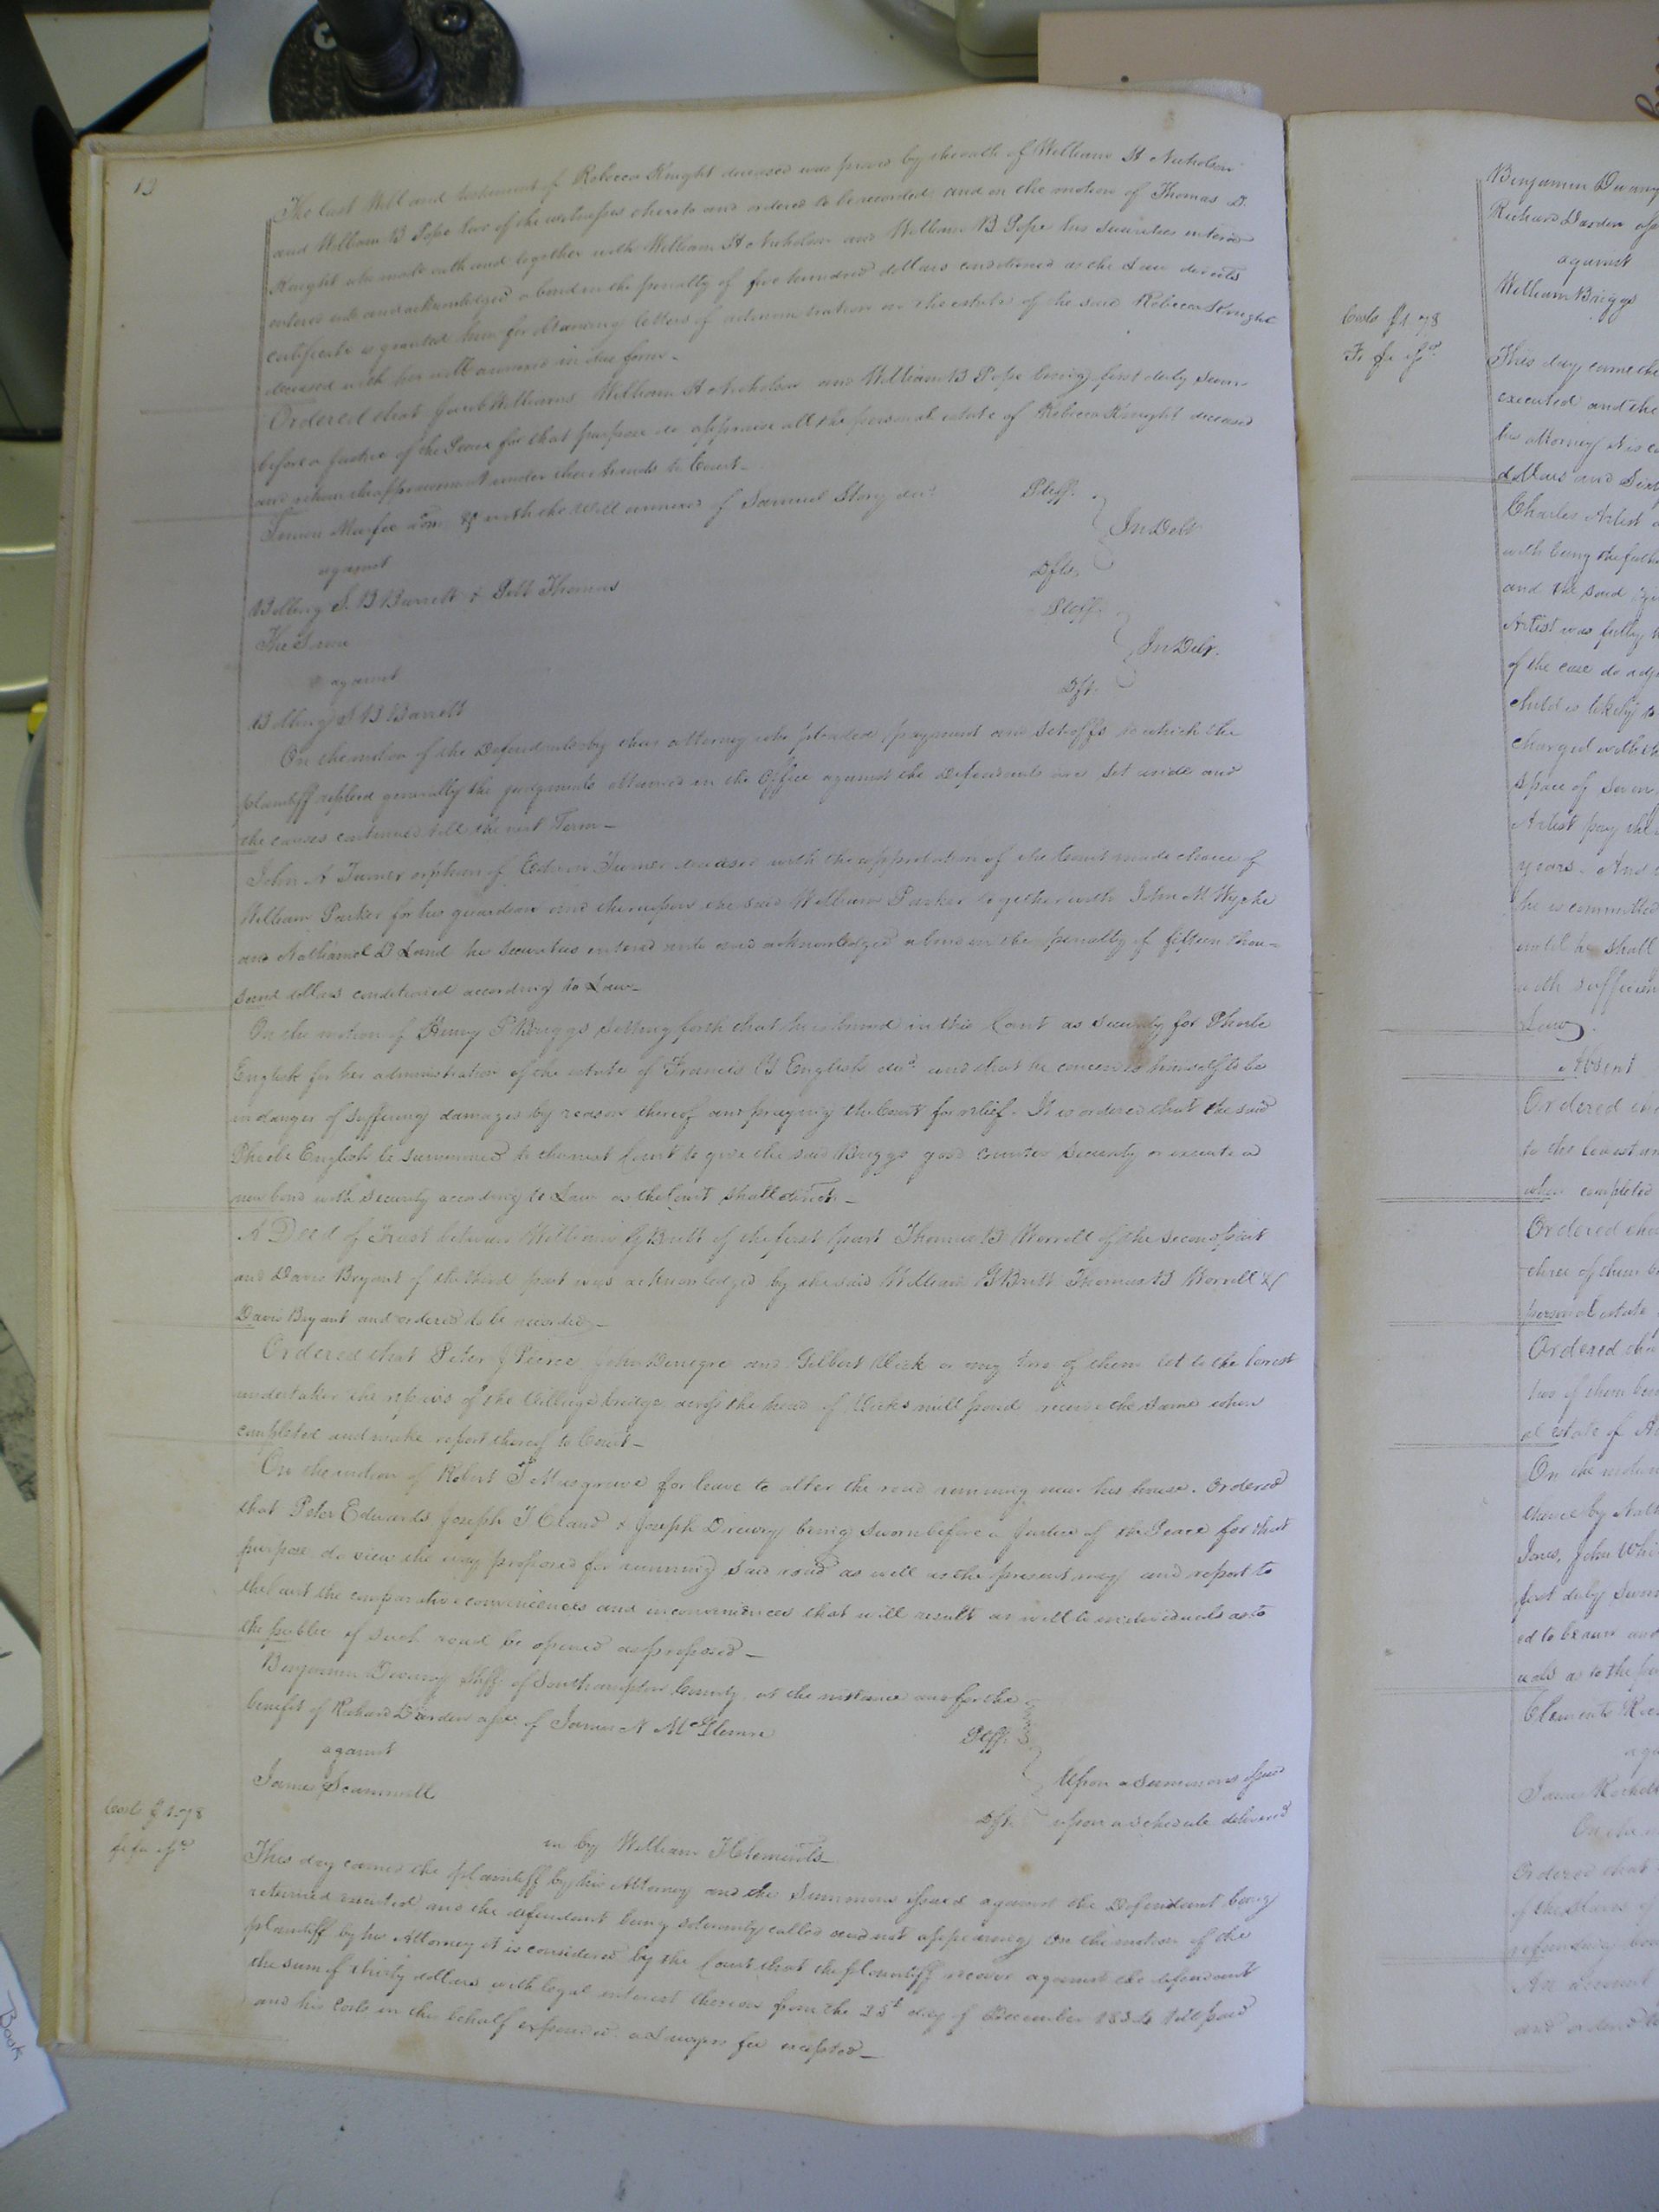 12
The last Will and testament of Rebecca Knight deceased was proved by the oath of William H Nicholson
and William B Pope two of the witnesses thereto and ordered to be recorded and on the motion of Thomas D.
Knight who made oath and together with William H Nicholson and William B Pope his securities entered
entered into and acknowledged a bond in the penalty of five hundred dollars conditioned as the Law directs
certificate is granted him for obtaining letters of administration on the estate of the said Rebecca Knight
deceased with her will annexed in due form
Ordered that Jacob Williams William H Nicholson and William B Pope being first duly sworn
before a Justice of the Peace for that purpose do appraise all the personal estate of Rebecca Knight deceased
and return the appraisement under their hands to Court
with the Will annexed of Samuel Story decd Pltff.
against In Debt
Billing S. B Barrett & Thomas Dfts.
The Same Pltff.
against In Debt.
Billing S B Barrett Dft.
On the motion of the Defendants by their attorney who pleaded payment and set-offs to which the
plaintiff replied generally the judgments obtained in the Office against the Defendants are set aside and
the causes continued till the next Term
John A Turner orphan of Turner deceased with the approbation of the Court made choice of
William Parker for his guardian and thereupon the said William Parker together with John M Wyche
and Nathaniel D Land his securities entered into and acknowledged a bond in the penalty of fifteen thou-
sand dollars conditioned according to Law
On the motion of Henry P Briggs setting forth that he is bound in this Court as security for Phoebe
English for her administration of the estate of Francis English decd. and that he conceives himself to be
in danger of suffering damages by reason thereof and praying the Court for relief. It is ordered that the said
Phoebe English be summoned to the next Court to give the said Briggs good counter security or execute a
new bond with security according to Law as the Court shall direct
A Deed of Trust between William G Britt of the first part Thomas B Worrell of the second part
and Davis Bryant of the third part was acknowledged by the said William G Britt Thomas B Worrell &
Davis Bryant and ordered to be recorded
Ordered that Peter J Pierce John Denegre and Gilbert Wick or any two of them let to the lowest
undertaker the repairs of the Village bridge across the head of Wicks mill pond receive the same when
completed and make report thereof to Court
On the motion of Robert T Musgrave for leave to alter the road running near his house. Ordered
that Peter Edwards Joseph T Claud & Joseph Drewry being sworn before a Justice of the Peace for that
purpose do view the way proposed for running said road as well as the present way and report to
the Court the comparative conveniences and inconveniences that will result as well to individuals as to
the public if such road be opened as proposed
Benjamin Devany Shff. of Southampton County at the instance and for the
benefit of Richard Darden asse. of James N McGlemre Pltff.
against Upon a summons issued
James Scammell Dft. upon a schedule delivered
in by William H Clements
Costs $1.78
fi fa isd
This day came the plaintiff by his Attorney and the Summons issued against the Defendant being
returned executed and the defendant being solemnly called and not appearing On the motion of the
plaintiff by his Attorney it is considered by the Court that the plaintiff recover against the defendant
the sum of thirty dollars with legal interest thereon from the 25th day of December 1834 till paid
and his Costs in this behalf expended a Lawyers fee excepted
Benjamin Devany
Richard Darden
against
William Briggs
Costs $1.78
Fi fa isd
This day came the
executed and the
his attorney it is co
dollars and
Charles Artist
with being the fath
and the said
Artist was fully
of the case do adj
child is likely to
charged with th
space of seven
Artist pay the
years. And
he is committed
until he shall
with sufficien
Law.
Absent
Ordered tha
to the lowest un
when completed
Ordered tha
three of them b
personal estate
Ordered tha
two of them bei
al estate of
On the motion
thence by Nath
Jones, John Whi
first duly sworn
ed to be
uals as to the pu
Clements
aga
James Rochel
On the
Ordered that
of the slaves of
refunding bon
An account
and ordered to
Book